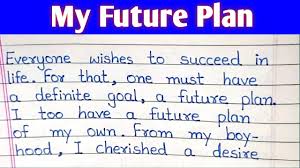 My Future Plan
Everyone wishes to succeed in
life. For that, one must have
a definite goal, a future plan.
I too have a future plan
of my own. From my boy-
hood, I cherished a desire